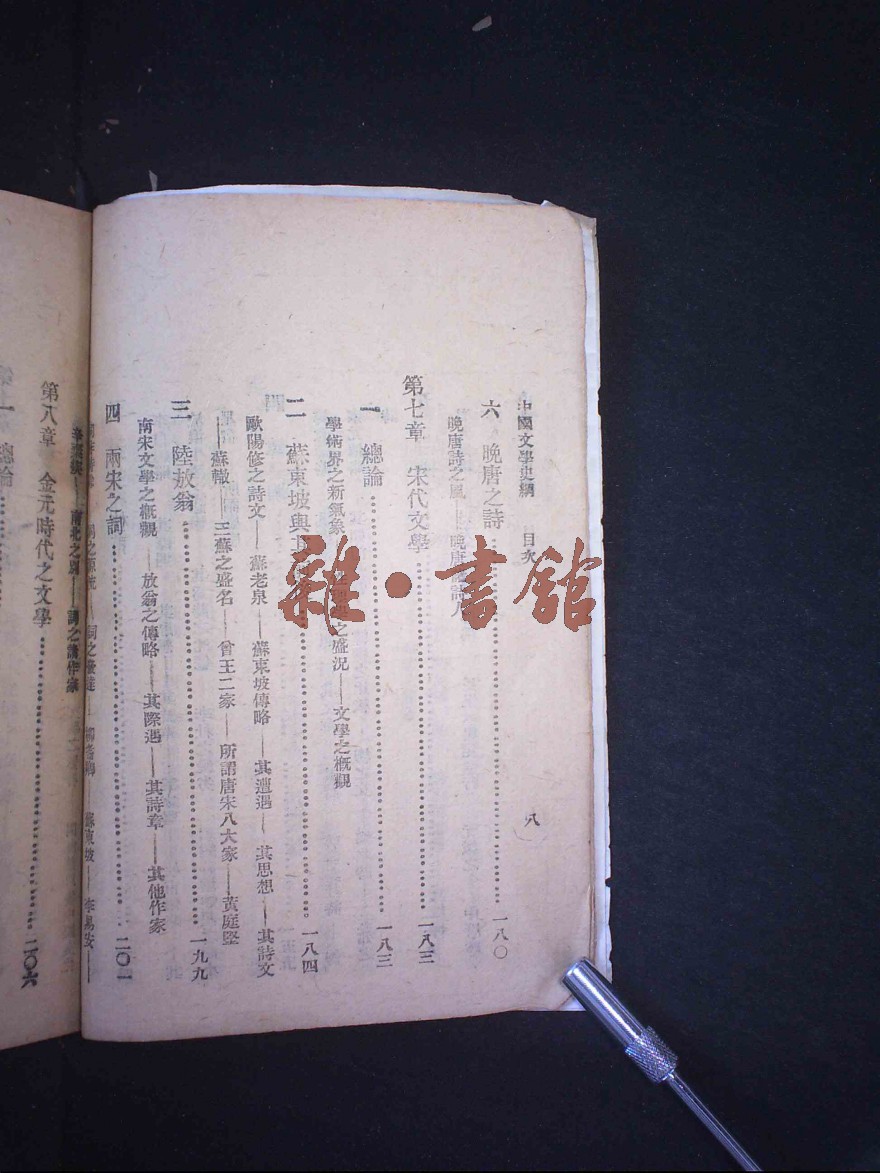 中國文學史綱　目次　八
六　晚唐之詩……一八〇
晚唐詩之風——晚唐
第七章　宋代文學……一八三
一　總論……一八三
學術界之新氣象　之盛況——文學之概觀
二　蘇東坡與其……一八四
歐陽修之詩文——蘇老泉——蘇東坡傳略——其遭遇——其思想——其詩文
——蘇轍——三蘇之盛名——曾王二家——所謂唐宋八大家——黃庭堅
三　陸放翁……一九九
南宋文學之概觀——放翁之傳略——其際遇——其詩章——其他作家
四　兩宋之詞……二〇一
詞之發達——蘇東坡——李易安——
辛棄疾——南北之別——詞之諸作家
第八章　金元時代之文學……二〇六
一　總論……
雜·書館